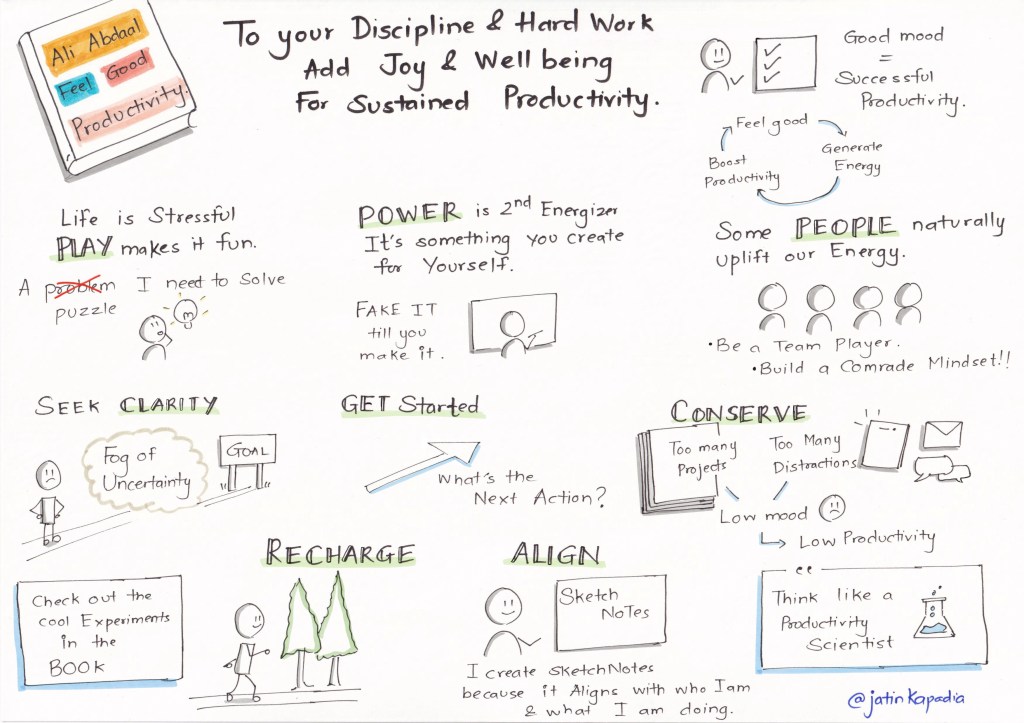 Ali Abdaal
Feel Good
Productivity.
To your Discipline & Hard Work
Add Joy & Well being
For Sustained Productivity.
Good mood
=
Successful
Productivity.
Feel good
Generate
Energy
Boost
Productivity
Life is Stressful
PLAY makes it fun.
A problem I need to Solve
puzzle
POWER is 2nd Energizer
It's something you create
for Yourself.
FAKE IT
till you
make it.
Some PEOPLE naturally
uplift our Energy.
• Be a Team Player.
• Build a Comrade Mindset!!
SEEK CLARITY
Fog of
Uncertainty
GOAL
GET Started
What's the
Next Action?
CONSERVE
Too many
Projects
Too Many
Distractions
Low mood
Low Productivity
RECHARGE
Check out the
cool Experiments
in the
BOOK
ALIGN
Sketch
NoTes
I create SketchNotes
because it Aligns with who I am
& what I am doing.
Think like a
Productivity
Scientist
@jatinkapadia